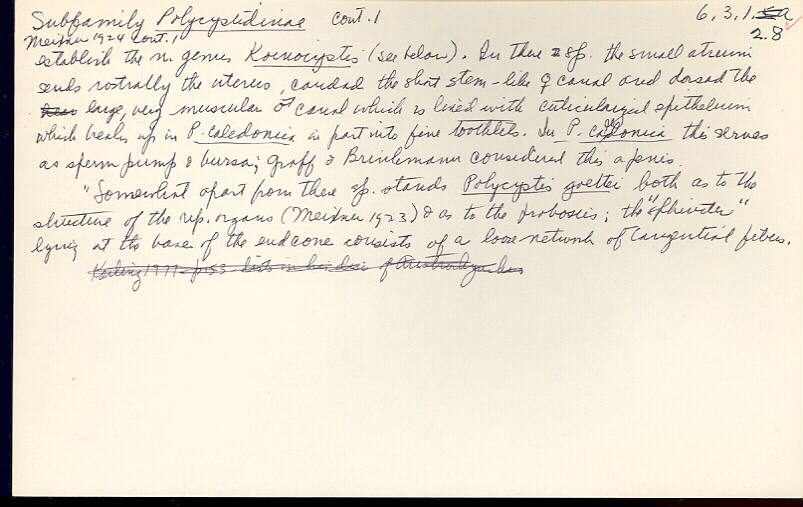 Subfamily Polycystidinae cont. 1 6.3.1.
Meixner 1924 cont. 1 2.8
establish the n. genus Koinocystis (see below). In these 2 sp. the small atrium
sends rostrally the uterus, caudad the short stem-like ♀ canal and dorsad the
large, very muscular ♂ canal which is lined with cuticularized epithelium
which breaks up in P. caledonica in part into fine toothlets. In P. caledonica this serves
as sperm pump & bursa; Graff & Brinkmann considered this a penis.
"Somewhat apart from these sp. stands Polycystis goettei both as to the
structure of the rep. organs (Meixner 1923) & as to the proboscis; the "sphincter"
lying at the base of the endcone consists of a loose network of tangential fibers.
Karling 1977 p. 153 lists in